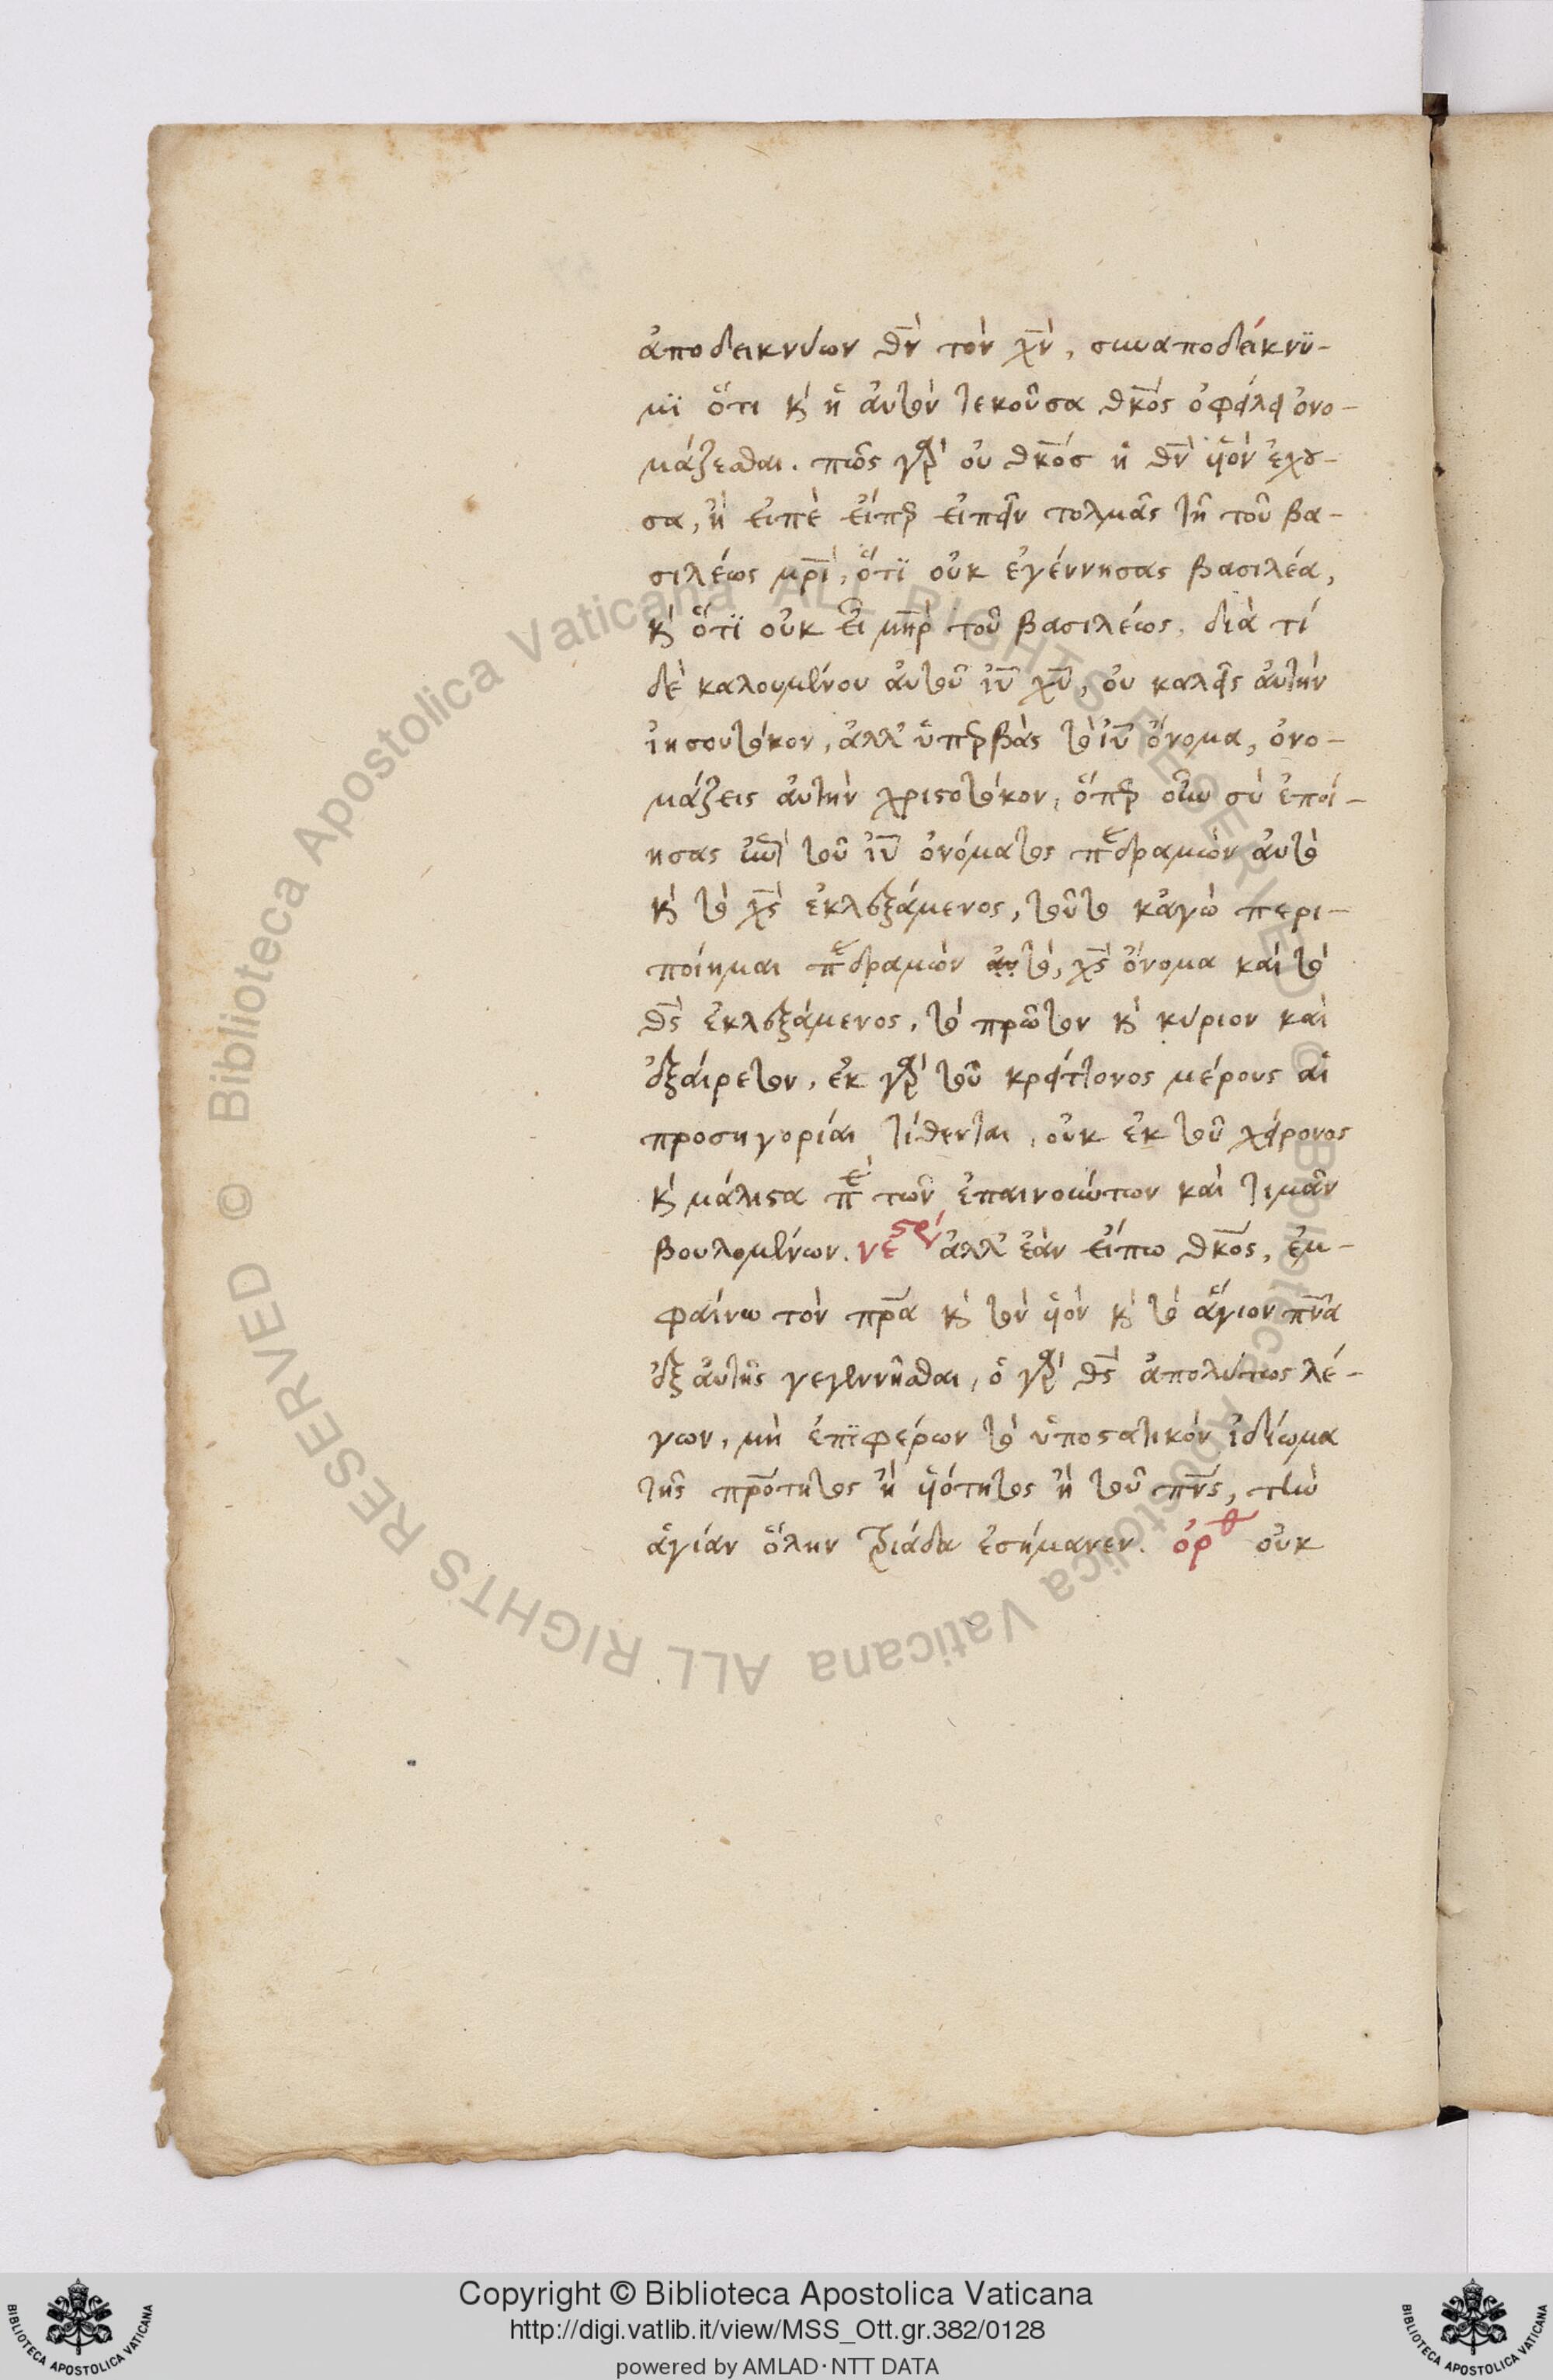 ἀποδεικνύων θ̅ν̅ τὸν χ̅ν̅, συναποδείκνϋ-
μϊ ὅτι κ̀ ἡ αὐτὸν τεκοῦσα θ̅κ̅ο̅ς ὀφείλει ὀνο-
μάζεσθαι. πῶς γὰρ οὐ θ̅κ̅ο̅σ ἡ θ̅ν̅ υἱὸν ἔχου-
σα, ἢ εἰπὲ εἴπερ εἰπεῖν τολμᾶς τῆ τοῦ βα-
σιλέως μ̅ρ̅ι̅, ὅτϊ οὐκ ἐγέννησας βασιλέα,
κ̀ ὅτϊ οὐκ εἶ μ̅η̅ρ̅ τοῦ βασιλέως. διὰ τί
δὲ καλουμένου αὐτοῦ ἰ̅υ̅ χ̅υ̅, οὐ καλεῖς αὐτὴν
ἰησουτόκον, ἀλλ' ὑπερβὰς τὸ ἰ̅υ̅ ὄνομα, ὀνο-
μάζεις αὐτὴν χριστοτόκον, ὅπερ οὖν σὺ ἐποί-
ησας ἐπὶ τοῦ ἰ̅υ̅ ὀνόματος περιδραμὼν αὐτὸ
κ̀ τὸ χ̅ς̅ ἐκλεξάμενος, τοῦτο κἀγὼ περι-
ποίημαι περιδραμὼν αὐτὸ, χ̅ς̅ ὄνομα καὶ τὸ
θ̅ς̅ ἐκλεξάμενος, τὸ πρῶτον κ̀ κύριον καὶ
ἐξαίρετον, ἐκ γὰρ τοῦ κρείττονος μέρους αἱ
προσηγορίαι τίθενται, οὐκ ἐκ τοῦ χείρονος
κ̀ μάλιστα περὶ τῶν ἐπαινούντων καὶ τιμᾶν
βουλομένων. νεστ ἀλλ' ἐὰν εἴπω θ̅κ̅ο̅ς, ἐμ-
φαίνω τὸν π̅ρ̅α̅ κ̀ τὸν υἱὸν κ̀ τὸ ἅγιον π̅ν̅α̅
ἐξ αὐτῆς γεγεννῆσθαι, ὁ γὰρ θ̅ς̅ ἀπολύτως λέ-
γων, μὴ ἐπϊφέρων τὸ ὑποστατικὸν ἰδίωμα
τῆς π̅ρ̅ο̅τητος ἢ υἱότητος ἢ τοῦ π̅ν̅ς̅, τὴν
ἁγίαν ὅλην τριάδα ἐσήμανεν. ὀρθ οὐκ
Copyright © Biblioteca Apostolica Vaticana
http://digi.vatlib.it/view/MSS_Ott.gr.382/0128
powered by AMLAD·NTT DATA
BIBLIOTECA APOSTOLICA VATICANA
BIBLIOTECA APOSTOLICA VATICANA
© Biblioteca Apostolica Vaticana ALL RIGHTS RESERVED © Biblioteca Apostolica Vaticana ALL RIGHTS RESERVED